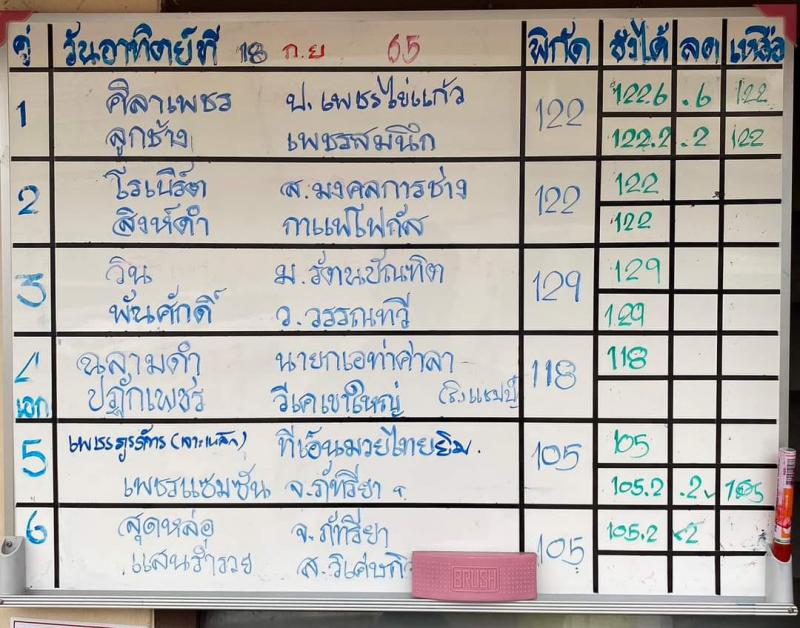 คู่ วันอาทิตย์ที่ 18 ก.ย 65 พิกัด ชั่งได้ ลด เหลือ
1 ศิลาเพชร ป.เพชรไข่แก้ว 122 122.6 .6 122
ลูกช้าง เพชรสมนึก 122.2 .2 122
2 โรเบิร์ต ส.มงคลการช่าง 122 122
สิงห์ดำ กาแฟโฟกัส 122
3 วิน ม.รัตนบัณฑิต 129 129
พันศักดิ์ ว.วรรณทวี 129
4 ฉลามดำ นายกเอท่าศาลา 118 118
เอก ปฏักเพชร วีเคเขาใหญ่ (ชิงแชมป์)
5 ทีเอ็นมวยไทยยิม. 105 105
เพชรแซมซัน จ.ภัทรียา 105.2 .2 105
6 สุดหล่อ จ.ภัทรียา 105 105.2 .2
แสนร่ำรวย
BRUSH